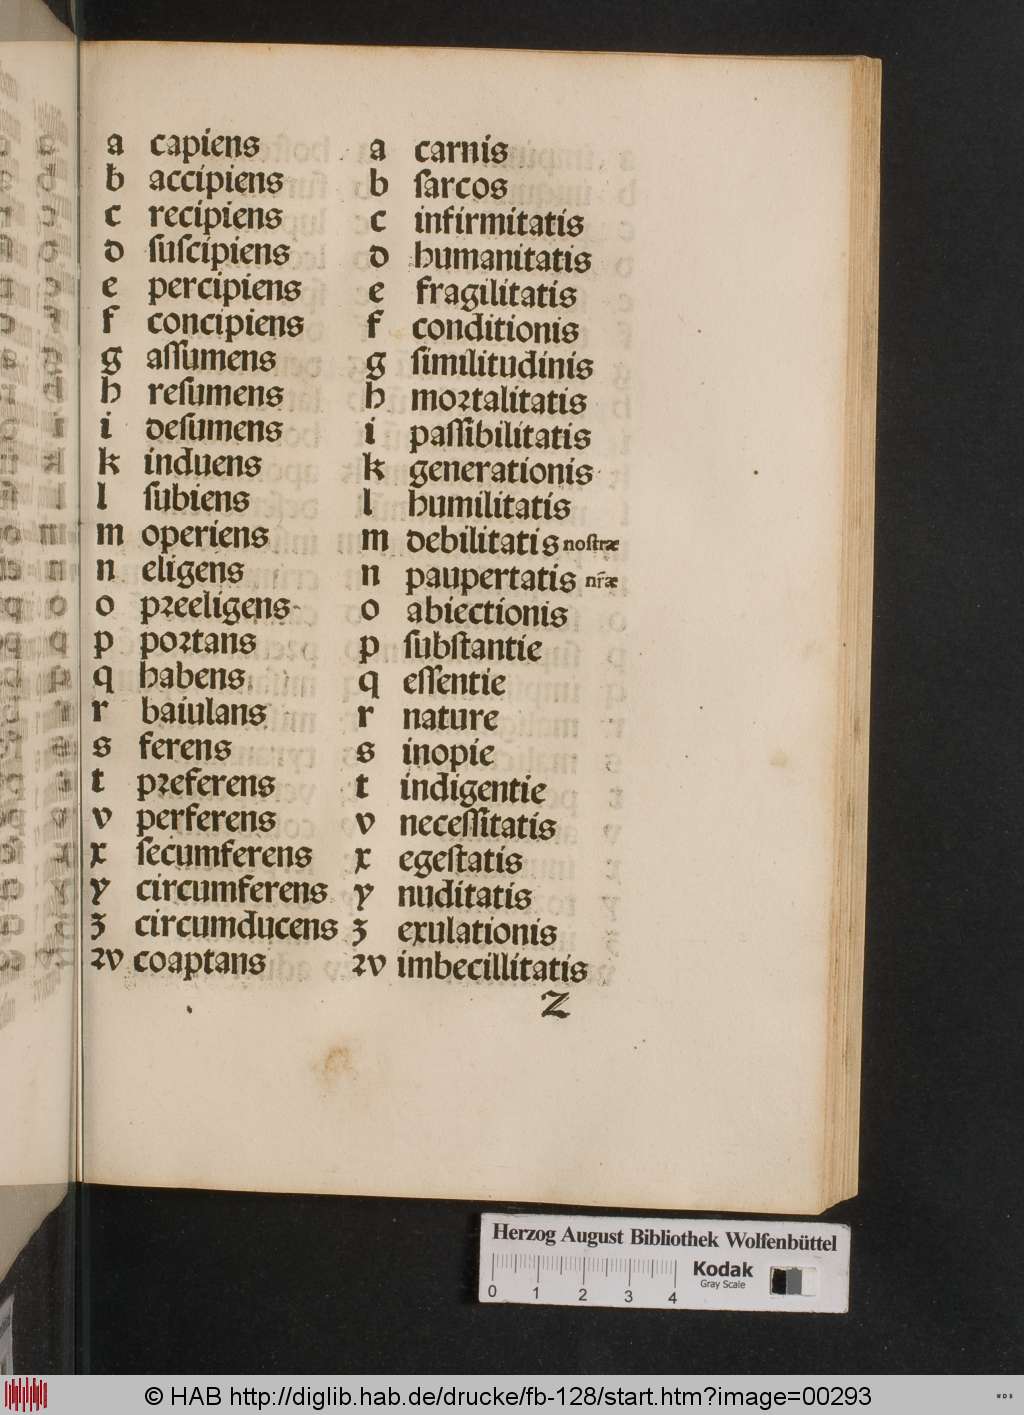 a capiens
b accipiens
c recipiens
d ſuſcipiens
e percipiens
f concipiens
g aſſumens
h reſumens
i deſumens
k induens
l ſubiens
m operiens
n eligens
o preeligens
p portans
q habens
r baiulans
s ferens
t preferens
v perferens
x ſecumferens
y circumferens
z circumducens
w coaptans
a carnis
b ſarcos
c infirmitatis
d humanitatis
e fragilitatis
f conditionis
g ſimilitudinis
h mortalitatis
i paſſibilitatis
k generationis
l humilitatis
m debilitatis noſtræ
n paupertatis nr̃æ
o abiectionis
p ſubſtantie
q eſſentie
r nature
s inopie
t indigentie
v neceſſitatis
x egeſtatis
y nuditatis
z exulationis
w imbecillitatis
Z
Herzog August Bibliothek Wolfenbüttel
Kodak
Gray Scale
0 1 2 3 4
© HAB http://diglib.hab.de/drucke/fb-128/start.htm?image=00293